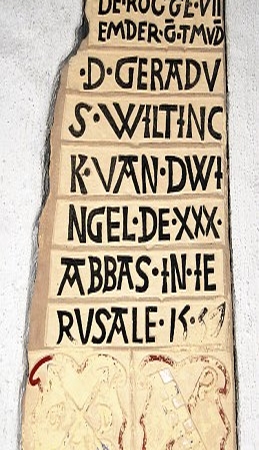 DE·ROGGE·VII
EMDER·G·TMVD
·D·GERADV
S·WILTINC
K·VAN·DWI
NGEL·DE·XXX·
ABBAS·IN·IE
RVSALE·15·57